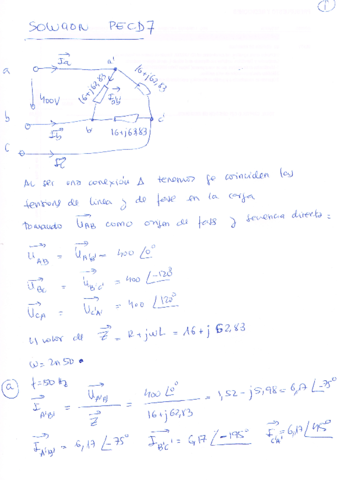 1
SOLUCION PECD7
a
Ia
a'
400V
16+j62,83
Ia'b'
16+j62,83
b
Ib
b'
16+j62,83
c'
c
Ic
AL ser una conexión Δ tenemos qe coinciden las
tensiones de linea y de fase en la carga
Tomando U_AB como origen de fases y secuencia directa:
U_AB = U_A'B' = 400 ∠0°
U_BC = U_B'C' = 400 ∠-120°
U_CA = U_C'A' = 400 ∠120°
El valor de Z = R + jωL = 16 + j 62,83
ω = 2π50
f = 50 Hz
a) I_A'B' = U_A'B' / Z = 400 ∠0° / 16+j62,83 = 1,52 - j5,98 = 6,17 ∠-75°
I_A'B' = 6,17 ∠-75° I_B'C' = 6,17 ∠-195° I_C'A' = 6,17 ∠45°